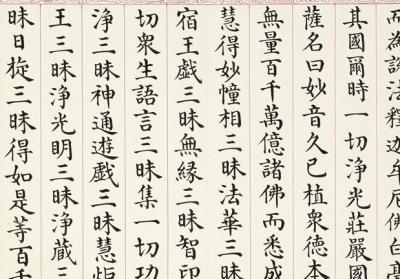 而為說法釋迦牟尼佛白毫
其國爾時一切淨光莊嚴國
薩名曰妙音久已植衆德本
無量百千萬億諸佛而悉成
慧得妙幢相三昧法華三昧
宿王戲三昧無緣三昧智印
切衆生語言三昧集一切功
淨三昧神通遊戲三昧慧炬
王三昧淨光明三昧淨藏三
昧日旋三昧得如是等百千